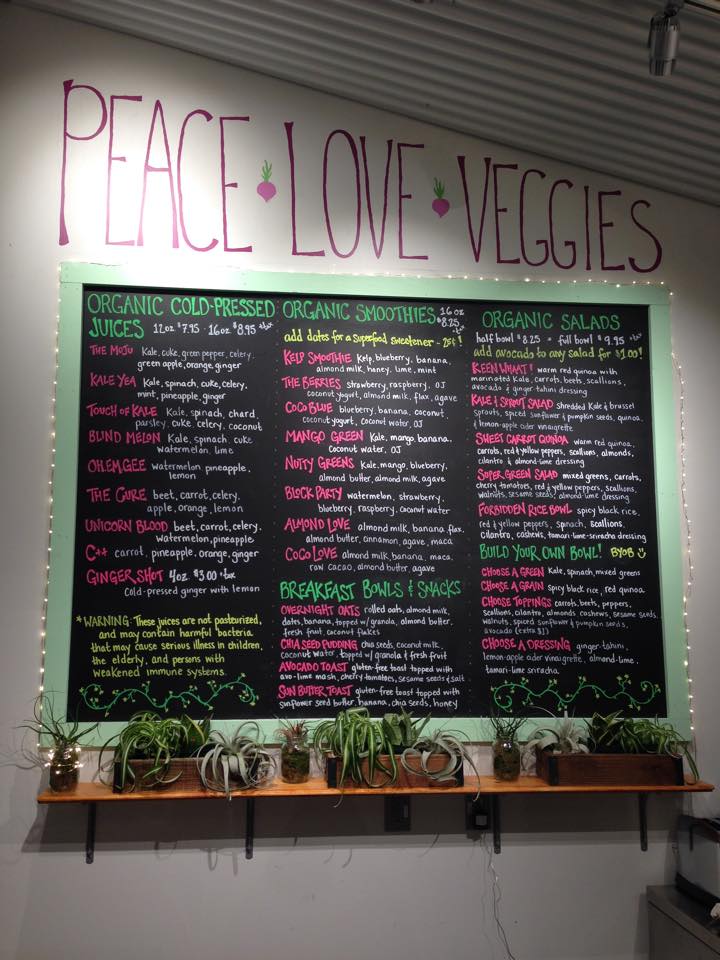 PEACE • LOVE • VEGGIES
ORGANIC COLD-PRESSED
JUICES 12oz $7.95 · 16oz $8.95 +tax
THE MOJU Kale, cuke, green pepper, celery,
green apple, orange, ginger
KALE YEA Kale, spinach, cuke, celery,
mint, pineapple, ginger
TOUCH OF KALE Kale, spinach, chard,
parsley, cuke, celery, coconut
BLIND MELON Kale, spinach, cuke
watermelon, lime
OH.EM.GEE watermelon, pineapple,
lemon
THE CURE beet, carrot, celery,
apple, orange, lemon
UNICORN BLOOD beet, carrot, celery,
watermelon, pineapple
C++ carrot, pineapple, orange, ginger
GINGER SHOT 4oz $3.00 +tax
Cold-pressed ginger with lemon
*WARNING: These juices are not pasteurized,
and may contain harmful bacteria
that may cause serious illness in children,
the elderly, and persons with
weakened immune systems.
ORGANIC SMOOTHIES 16oz
$8.25 +tax
add dates for a Superfood sweetener - 25¢!
KELP SMOOTHIE Kelp, blueberry, banana,
almond milk, honey, lime, mint
THE BERRIES strawberry, raspberry, OJ
coconut yogurt, almond milk, flax, agave
COCO BLUE blueberry, banana, coconut,
coconut yogurt, coconut water, OJ
MANGO GREEN Kale, mango, banana,
coconut water, OJ
NUTTY GREENS Kale, mango, blueberry,
almond butter, almond milk, agave
BLOCK PARTY watermelon, strawberry,
blueberry, raspberry, coconut water
ALMOND LOVE almond milk, banana, flax,
almond butter, cinnamon, agave, maca
COCO LOVE almond milk, banana, maca,
raw cacao, almond butter, agave
BREAKFAST BOWLS & SNACKS
OVERNIGHT OATS rolled oats, almond milk,
dates, banana, topped w/ granola, almond butter,
fresh fruit, coconut flakes
CHIA SEED PUDDING chia seeds, coconut milk,
coconut water, topped w/ granola & fresh fruit
AVOCADO TOAST gluten-free toast topped with
avo-lime mash, cherry tomatoes, sesame seeds & salt
SUN BUTTER TOAST gluten-free toast topped with
sunflower seed butter, banana, chia seeds, honey
ORGANIC SALADS
half bowl $8.25 • full bowl $9.95 +tax
add avocado to any salad for $1.00!
KEEN WHAT! warm red quinoa with
marinated Kale, carrots, beets, scallions,
avocado & ginger tahini dressing
KALE & SPROUT SALAD shredded Kale & brussel
sprouts, spiced sunflower & pumpkin seeds, quinoa,
& lemon-apple cider vinaigrette
SWEET CARROT QUINOA warm red quinoa,
carrots, red & yellow peppers, scallions, almonds,
cilantro & almond-lime dressing
SUPER GREEN SALAD mixed greens, carrots,
cherry tomatoes, red & yellow peppers, scallions,
walnuts, sesame seeds, almond-lime dressing
FORBIDDEN RICE BOWL spicy black rice,
red & yellow peppers, spinach, scallions,
cilantro, cashews, tamari-lime-sriracha dressing
BUILD YOUR OWN BOWL! BYOB
CHOOSE A GREEN Kale, spinach, mixed greens
CHOOSE A GRAIN spicy black rice, red quinoa
CHOOSE TOPPINGS carrots, beets, peppers,
scallions, cilantro, almonds, cashews, sesame seeds,
walnuts, spiced sunflower & pumpkin seeds,
avocado (extra $1)
CHOOSE A DRESSING ginger-tahini,
lemon-apple cider vinaigrette, almond-lime,
tamari-sriracha